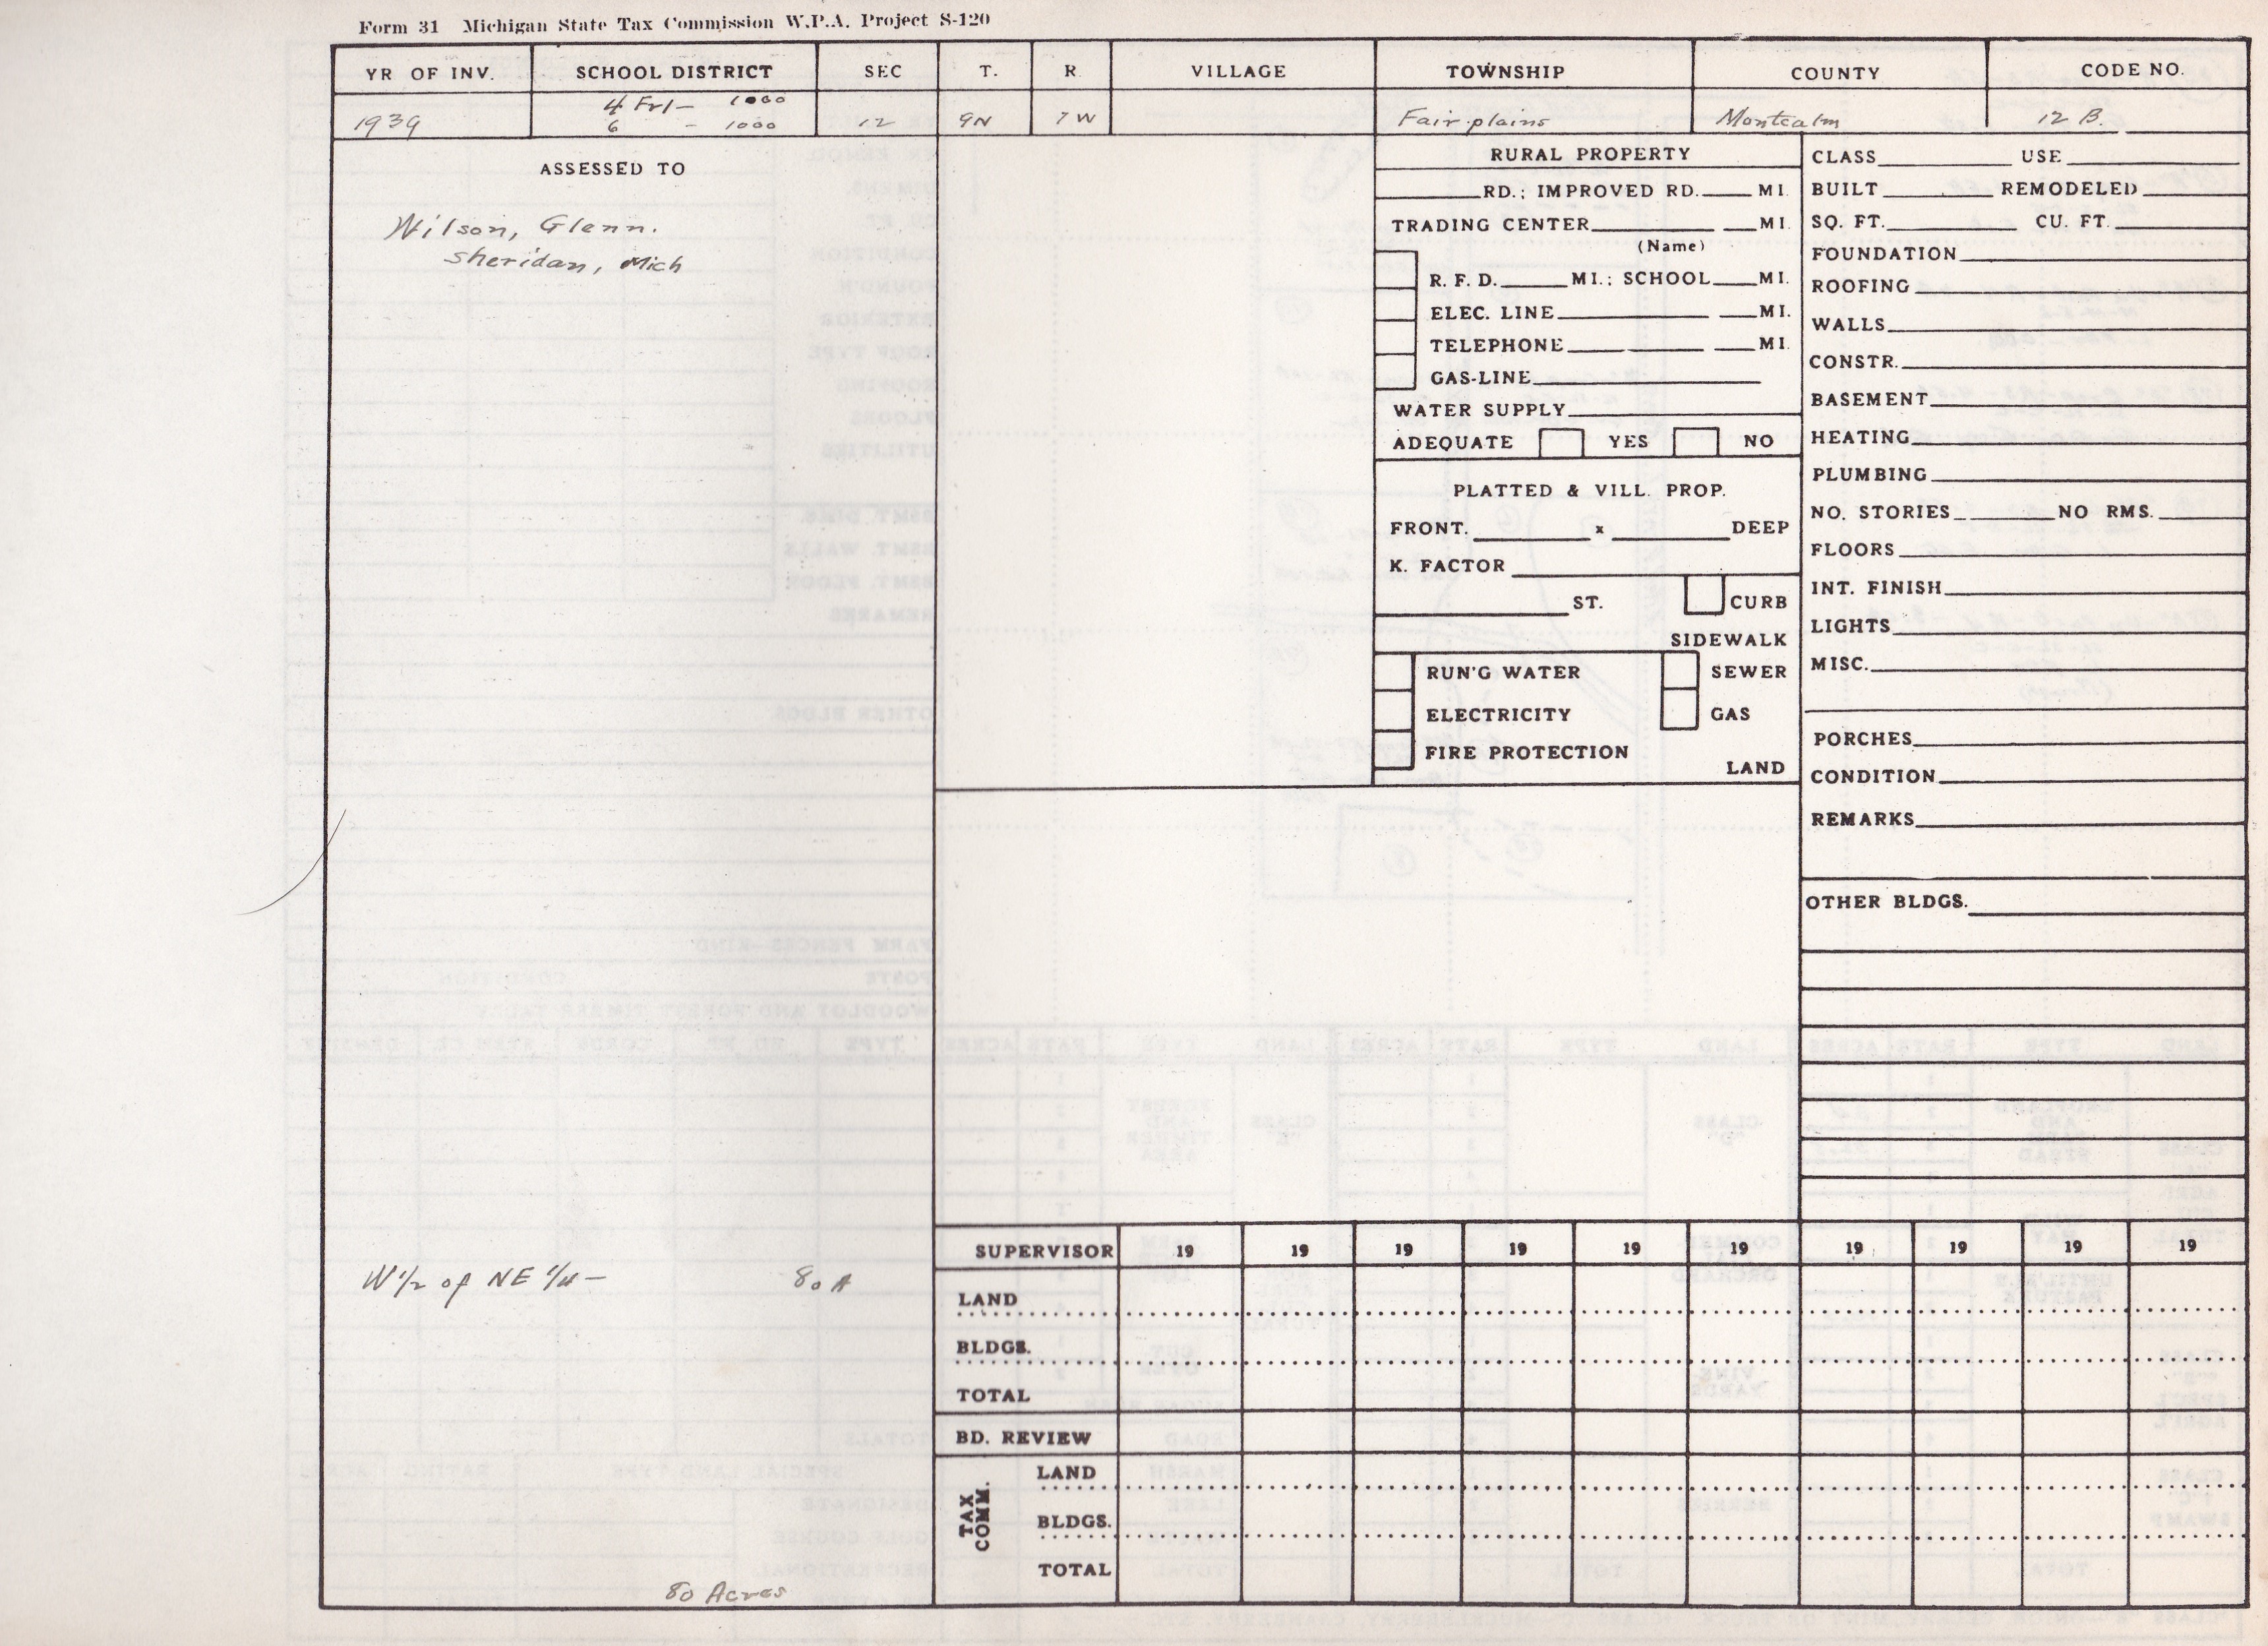 Form 31 Michigan State Tax Commission W.P.A. Project S-120
YR OF INV. SCHOOL DISTRICT SEC T. R. VILLAGE TOWNSHIP COUNTY CODE NO.
4 Frl – 1000
1939 6 – 1000 12 9N 7W Fairplains Montcalm 12 B.
ASSESSED TO
Wilson, Glenn.
Sheridan, Mich
W 1/2 of NE 1/4 – 80 A
80 Acres
RURAL PROPERTY
RD.; IMPROVED RD. MI.
TRADING CENTER MI.
(Name)
R. F. D. MI.; SCHOOL MI.
ELEC. LINE MI.
TELEPHONE MI.
GAS-LINE
WATER SUPPLY
ADEQUATE YES NO
PLATTED & VILL. PROP.
FRONT. x DEEP
K. FACTOR
ST. CURB
SIDEWALK
RUN'G WATER SEWER
ELECTRICITY GAS
FIRE PROTECTION
LAND
CLASS USE
BUILT REMODELED
SQ. FT. CU. FT.
FOUNDATION
ROOFING
WALLS
CONSTR.
BASEMENT
HEATING
PLUMBING
NO. STORIES NO RMS.
FLOORS
INT. FINISH
LIGHTS
MISC.
PORCHES
CONDITION
REMARKS
OTHER BLDGS.
SUPERVISOR 19 19 19 19 19 19 19 19 19 19
LAND
BLDGS.
TOTAL
BD. REVIEW
TAX COMM.
LAND
BLDGS.
TOTAL